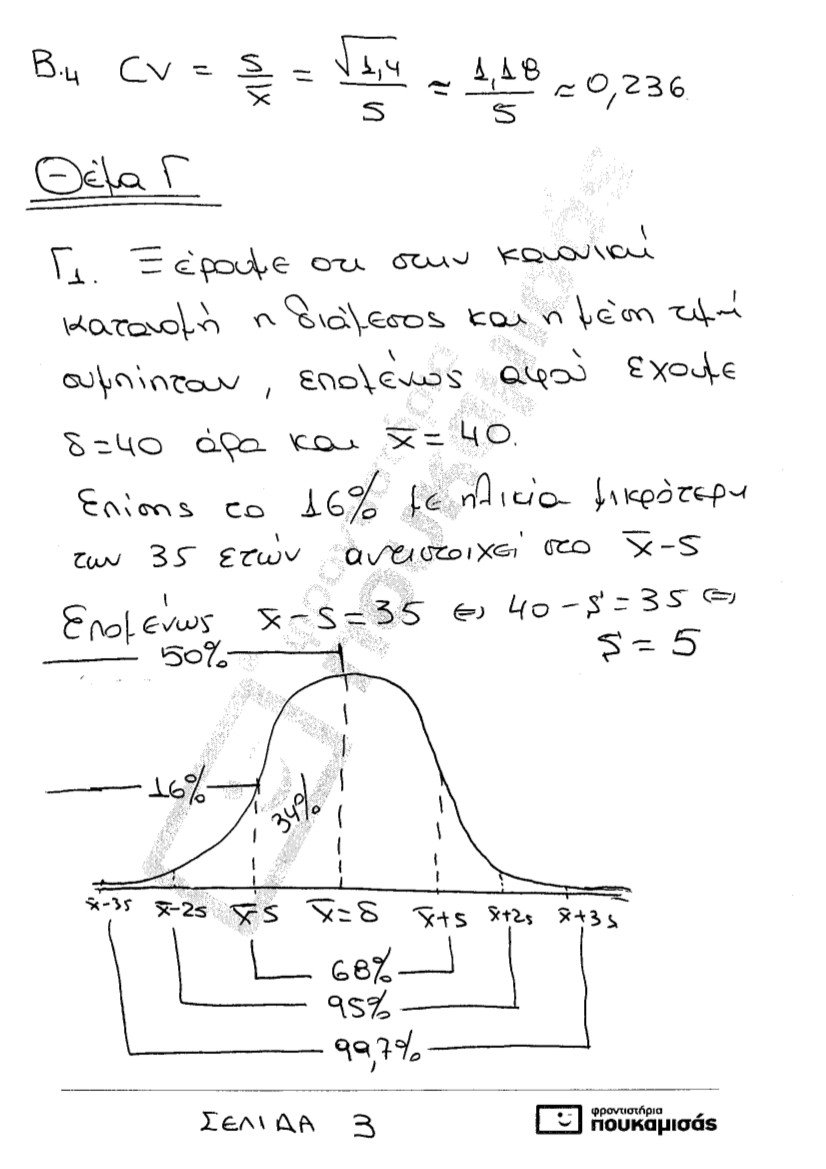 Β.4 CV = s/x̄ = √1,4/5 ≈ 1,18/5 ≈ 0,236
Θέμα Γ
Γ1. Ξέρουμε οτι στην κανονική
κατανομή η διάμεσος και η μέση τιμή
συμπίπτουν, επομένως αφού έχουμε
δ=40 άρα και x̄=40.
Επίσης το 16% με ηλικία μικρότερη
των 35 ετών αντιστοιχεί στο x̄-s
Επομένως x̄-s=35 ⇔ 40-s=35 ⇔
s=5
50%
16%
34%
x̄-3s x̄-2s x̄-s x̄=δ x̄+s x̄+2s x̄+3s
68%
95%
99,7%
ΣΕΛΙΔΑ 3
φροντιστήρια
πουκαμισάς
φροντιστήρια
πουκαμισάς